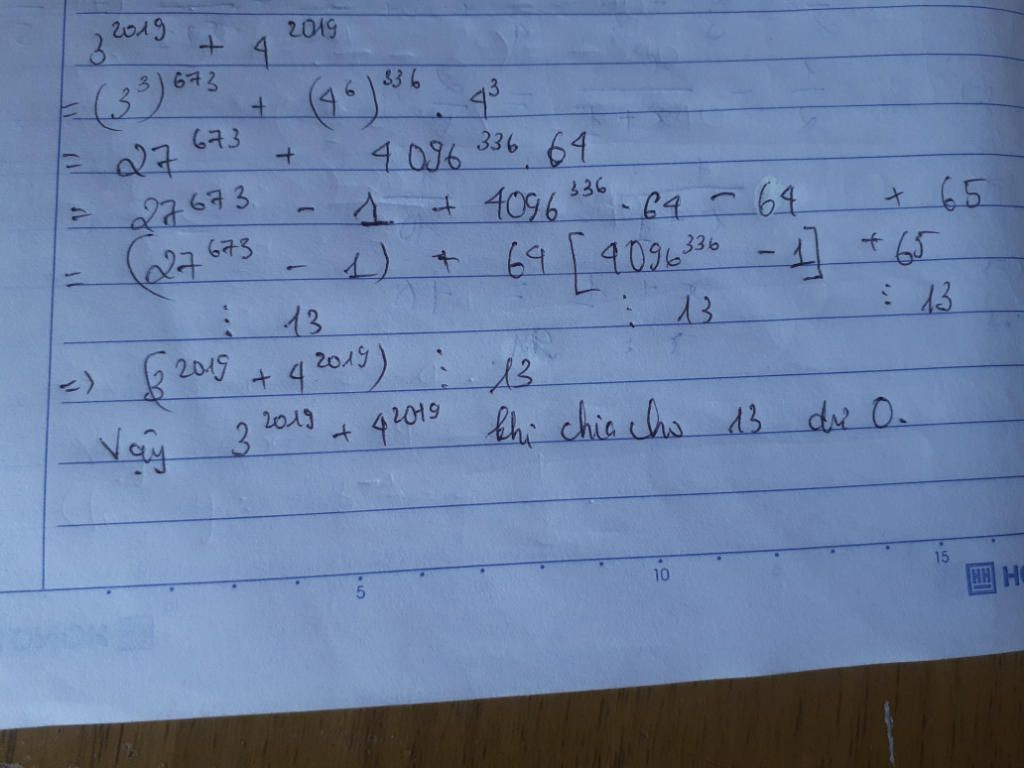 3^2019 + 4^2019
= (3^3)^673 + (4^6)^336 . 4^3
= 27^673 + 4096^336 . 64
= 27^673 - 1 + 4096^336 . 64 - 64 + 65
= (27^673 - 1) + 64 [4096^336 - 1] + 65
⋮ 13 ⋮ 13 ⋮ 13
=> (3^2019 + 4^2019) ⋮ 13
Vậy 3^2019 + 4^2019 khi chia cho 13 dư 0.
5 10 15